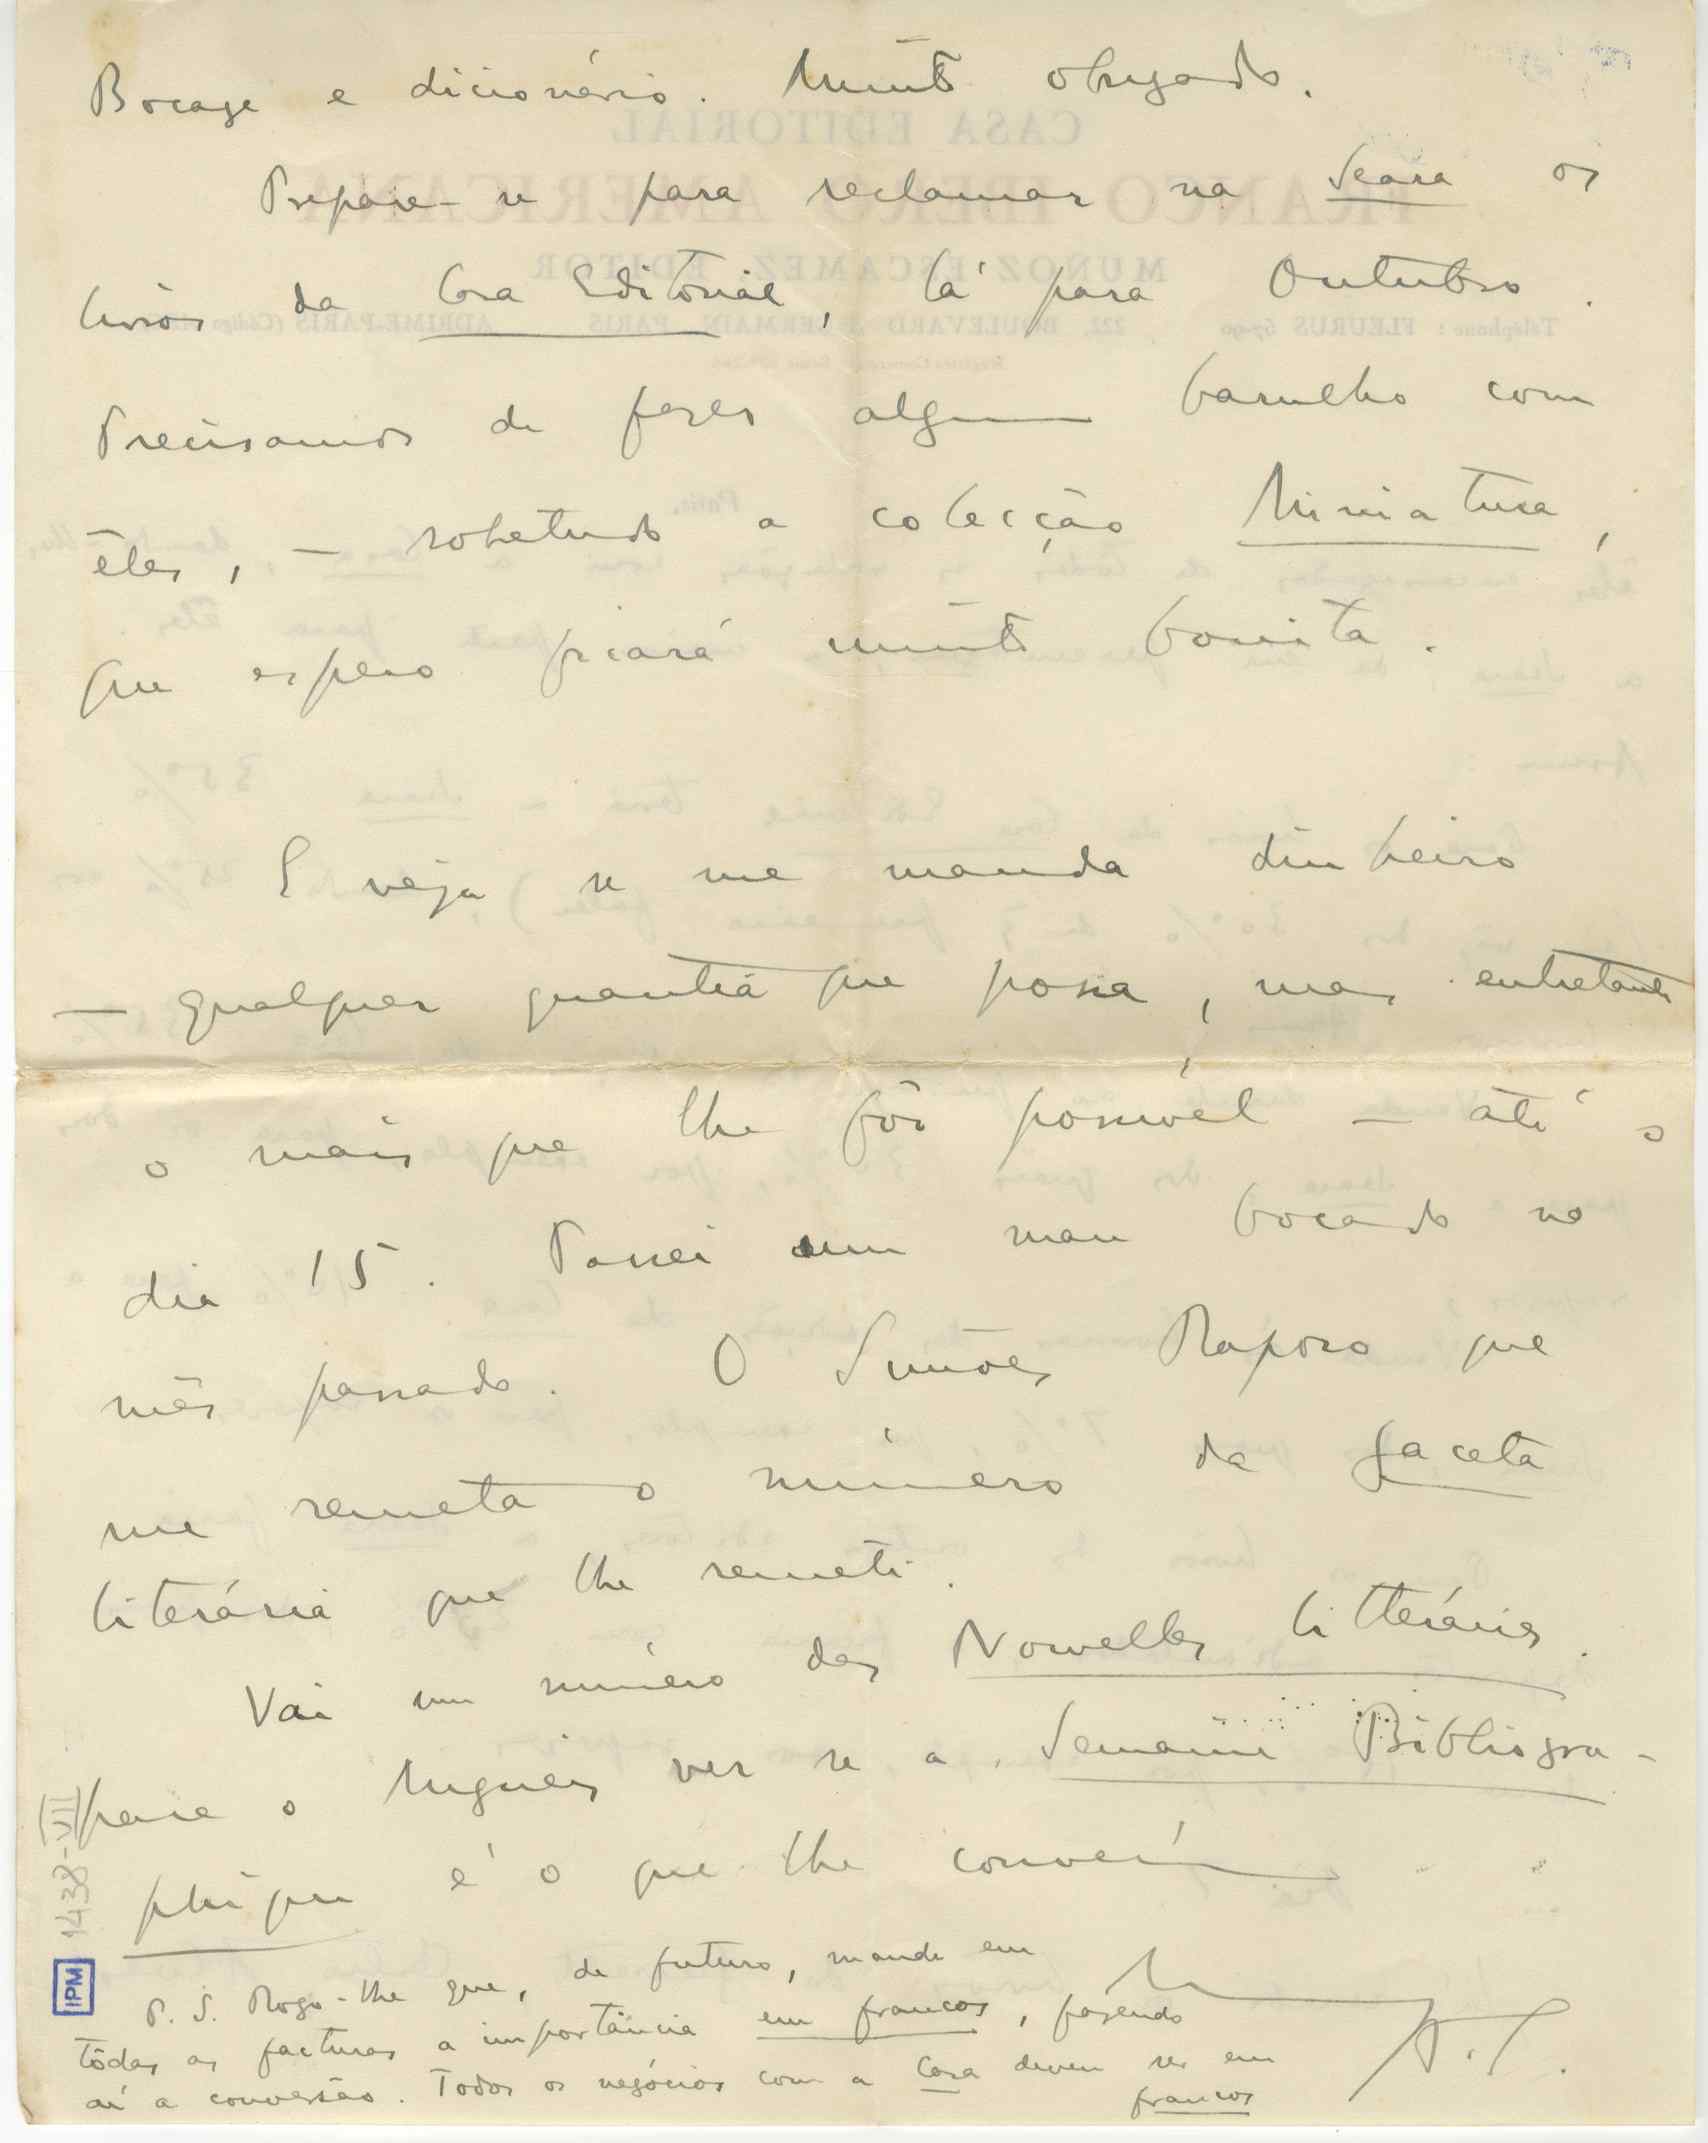 Bocage e dicionário. Muito obrigado.
Prepare-se para reclamar na Seara os
livros da Casa Editorial, lá para Outubro.
Precisamos de fazer algum barulho com
êles, — sobretudo a colecção Miniatura,
que espero ficará muito bonita.
E veja se me manda dinheiro
— qualquer quantia que possa, mas entretanto
o mais que lhe fôr possível — até o
dia 15. Passei um mau bocado no
mês passado. O Simões Raposo que
me remeta o número da Gaceta
literária que lhe remeti.
Vai um número das Nouvelles littéraires.
para o Migueis ver se a Semaine Bibliogra-
phique é o que lhe convém
P. S. Rogo-lhe que, de futuro, mande em
tôdas as facturas a importância em francos, fazendo
aí a conversão. Todos os negócios com a Casa devem ser em
francos
A. S.
1438-VII
IPM
CASA EDITORIAL
FRANCO IBERO AMERICANA
MUÑOZ ESCAMEZ, EDITOR
Téléphone: FLEURUS 67-90 222, BOULEVARD St GERMAIN, PARIS ADRIME-PARIS